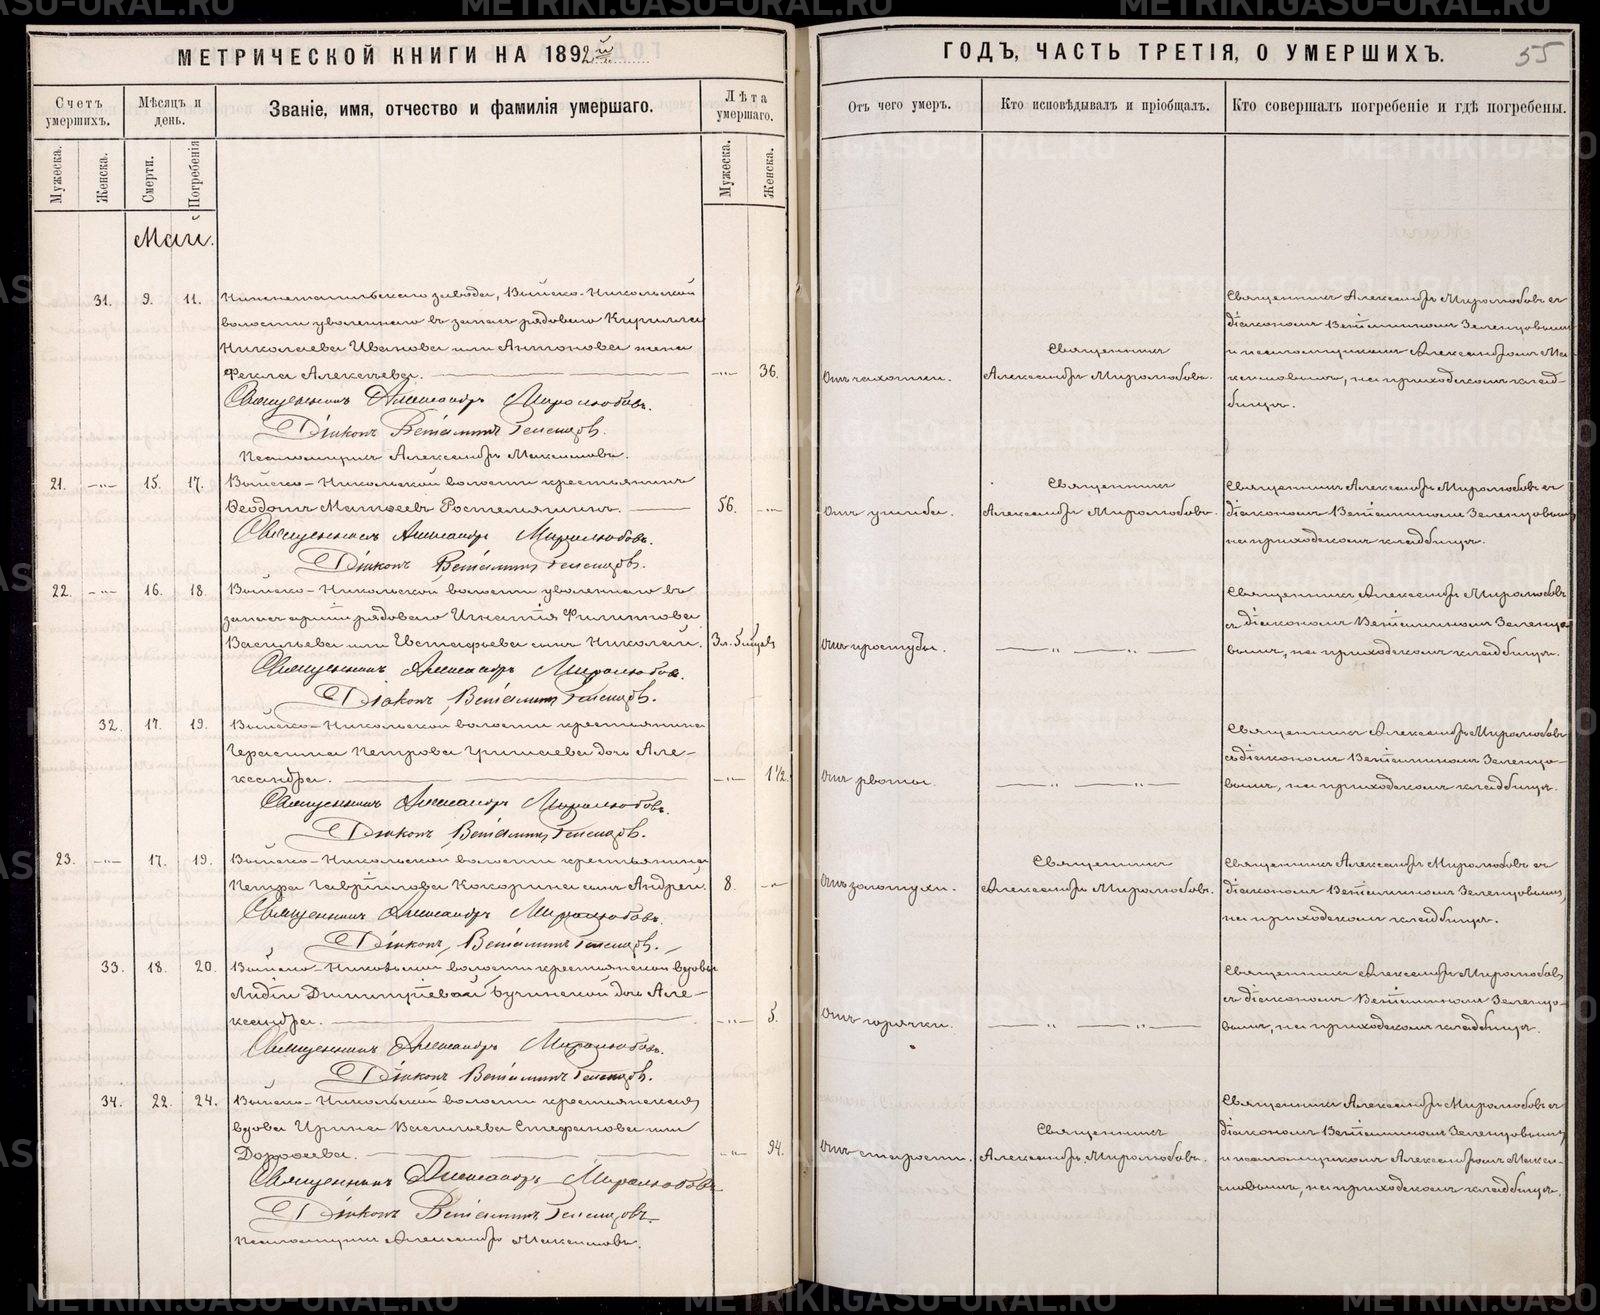 МЕТРИЧЕСКОЙ КНИГИ НА 1892й
Счетъ умершихъ.
Мѣсяцъ и день.
Званіе, имя, отчество и фамилія умершаго.
Лѣта умершаго.
Мужеска.
Женска.
Смерти.
Погребенія
Мужеска.
Женска.
Май.
31. 9. 11. Нижнетагильскаго завода, Выйско-Никольской
волости уволеннаго въ запасъ рядоваго Кирилла
Николаева Иванова или Антонова жена
Фекла Алексѣева. —"— 36.
Священникъ Александръ Миролюбовъ.
Діаконъ Веніаминъ Зеленцовъ.
Псаломщикъ Александръ Максимовъ.
21. —"— 15. 17. Выйско-Никольской волости крестьянинъ
Ѳеодотъ Матѳеевъ 56. —"—
Священникъ Александръ Миролюбовъ.
Діаконъ Веніаминъ Зеленцовъ.
22. —"— 16. 18. Выйско-Никольской волости уволеннаго въ
запасъ арміи рядоваго Игнатія Филиппова
Васильева или Евстафьева сынъ Николай. 3 л. 5 мцевъ
Священникъ Александръ Миролюбовъ.
Діаконъ Веніаминъ Зеленцовъ.
32. 17. 19. Выйско-Никольской волости крестьянина
Герасима Петрова дочь Але-
ксандра. —"— 1½.
Священникъ Александръ Миролюбовъ.
Діаконъ Веніаминъ Зеленцовъ.
23. —"— 17. 19. Выйско-Никольской волости крестьянина
Петра Гавріилова Кокорина сынъ Андрей. 8. —"—
Священникъ Александръ Миролюбовъ.
Діаконъ Веніаминъ Зеленцовъ.
33. 18. 20. Выйско-Никольской волости крестьянской вдовы
Лидіи Димитріевой дочь Але-
ксандра. —"— 5.
Священникъ Александръ Миролюбовъ.
Діаконъ Веніаминъ Зеленцовъ.
34. 22. 24. Выйско-Никольской волости крестьянская
вдова Ирина Васильева Стефанова или
Дороѳеева. —"— 94.
Священникъ Александръ Миролюбовъ
Діаконъ Веніаминъ Зеленцовъ.
Псаломщикъ Александръ Максимовъ.
ГОДЪ, ЧАСТЬ ТРЕТІЯ, О УМЕРШИХЪ. 55
Отъ чего умеръ.
Кто исповѣдывалъ и пріобщалъ.
Кто совершалъ погребеніе и гдѣ погребены.
Отъ чахотки.
Священникъ
Александръ Миролюбовъ.
Священникъ Александръ Миролюбовъ съ
діакономъ Веніаминомъ Зеленцовымъ
и псаломщикомъ Александромъ Ма-
ксимовымъ, на приходскомъ клад-
бищѣ.
Отъ ушиба.
Священникъ
Александръ Миролюбовъ.
Священникъ Александръ Миролюбовъ съ
діакономъ Веніаминомъ Зеленцовымъ
на приходскомъ кладбищѣ.
Отъ простуды.
— " — " —
Священникъ Александръ Миролюбовъ
съ діакономъ Веніаминомъ Зеленцо-
вымъ, на приходскомъ кладбищѣ.
Отъ рвоты.
— " — " —
Священникъ Александръ Миролюбовъ
съ діакономъ Веніаминомъ Зеленцо-
вымъ, на приходскомъ кладбищѣ.
Отъ золотухи.
Священникъ
Александръ Миролюбовъ.
Священникъ Александръ Миролюбовъ съ
діакономъ Веніаминомъ Зеленцовымъ,
на приходскомъ кладбищѣ.
Отъ горячки.
— " — " —
Священникъ Александръ Миролюбовъ
съ діакономъ Веніаминомъ Зеленцо-
вымъ, на приходскомъ кладбищѣ.
Отъ старости.
Священникъ
Александръ Миролюбовъ.
Священникъ Александръ Миролюбовъ съ
діакономъ Веніаминомъ Зеленцовымъ
и псаломщикомъ Александромъ Макси-
мовымъ, на приходскомъ кладбищѣ.
METRIKI.GASO-URAL.RU